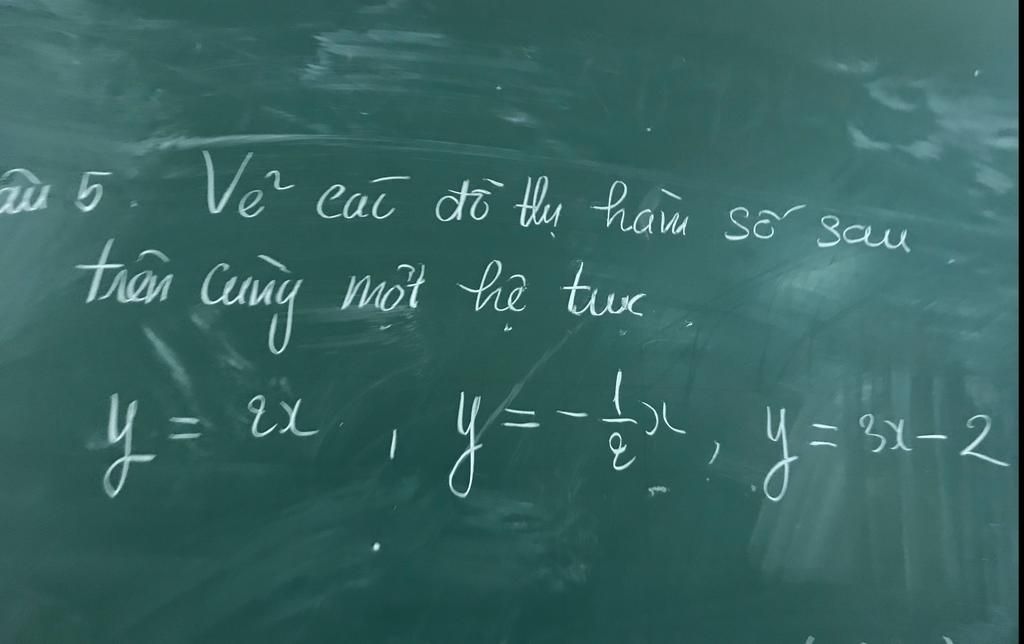 âu 5. Vẽ các đồ thị hàm số sau
trên cùng một hệ trục
y = 2x, y = -1/2 x, y = 3x - 2